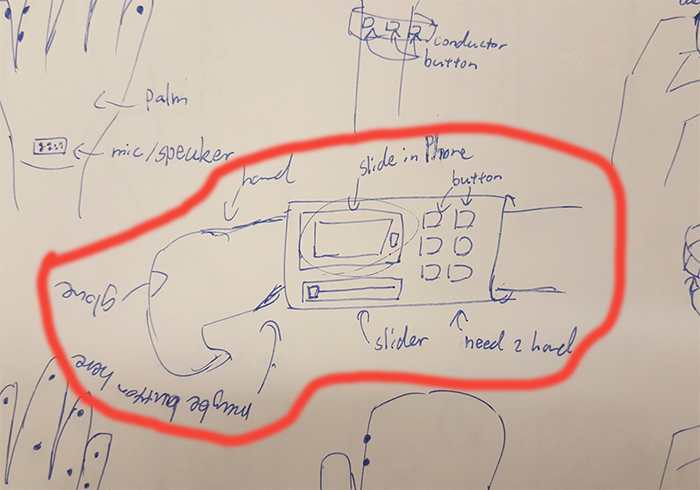 conductor
button
palm
mic/speaker
hand
slide in Phone
button
glove
slider
need 2 hand
maybe button here